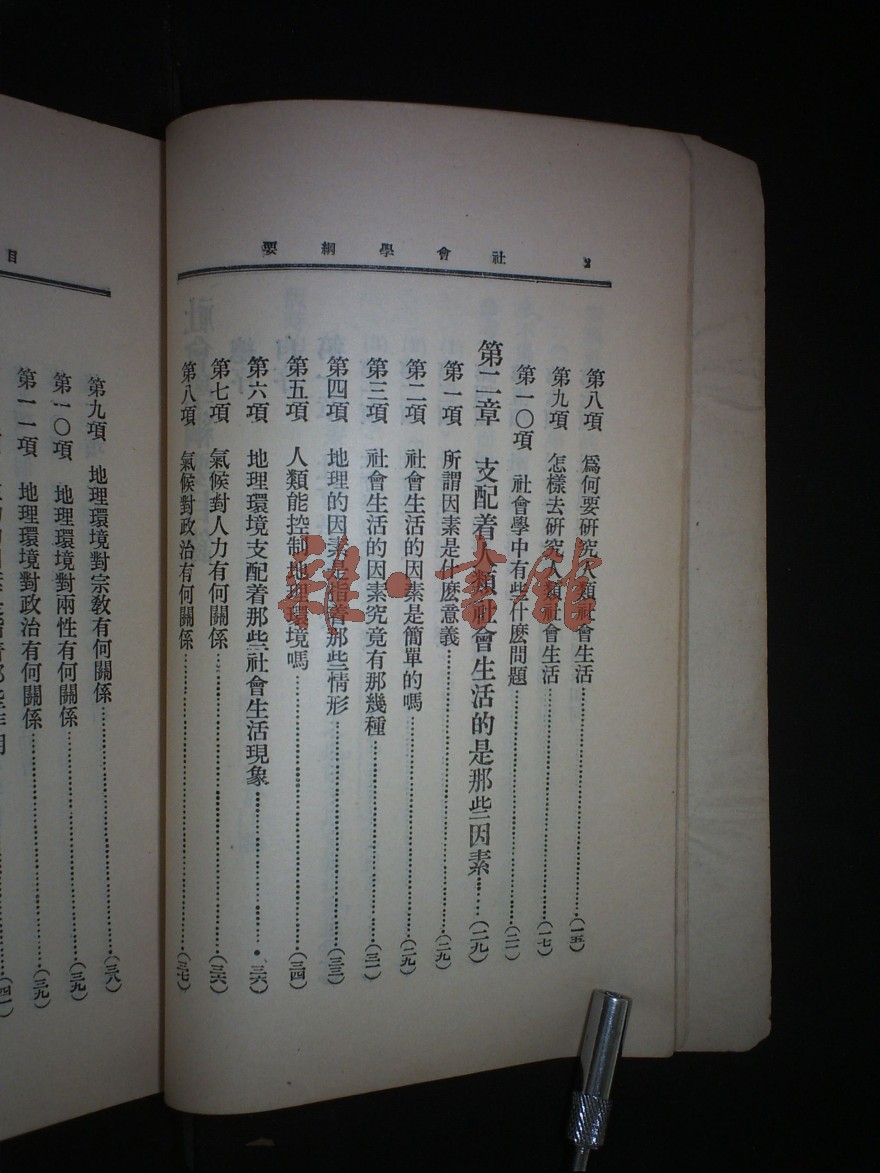 社會學綱要 2
第八項 爲何要研究人類社會生活……(一五)
第九項 怎樣去研究人類社會生活……(一七)
第一〇項 社會學中有些什麽問題……(二一)
第二章 支配着人類社會生活的是那些因素……(二九)
第一項 所謂因素是什麽意義……(二九)
第二項 社會生活的因素是簡單的嗎……(二九)
第三項 社會生活的因素究竟有那幾種……(三一)
第四項 地理的因素是指着那些情形……(三三)
第五項 人類能控制地理環境嗎……(三四)
第六項 地理環境支配着那些社會生活現象……(三六)
第七項 氣候對人力有何關係……(三六)
第八項 氣候對政治有何關係……(三七)
目
第九項 地理環境對宗敎有何關係……(三八)
第一〇項 地理環境對兩性有何關係……(三九)
第一一項 地理環境對政治有何關係……(三九)
雜·書館